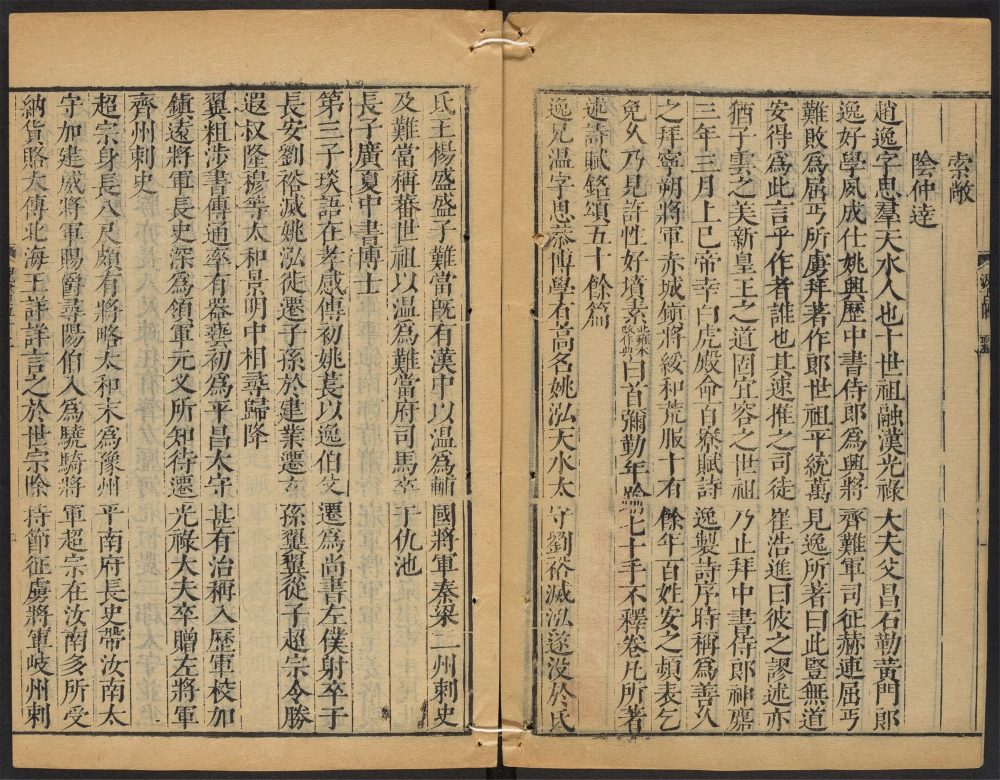 索敞
陰仲逹
趙逸字思羣天水人也十世祖融漢光祿大夫父昌石勒黃門郎
逸好學夙成仕姚興歷中書侍郎爲興將齊難軍司征赫連屈丐
難敗爲屈丐所虜拜著作郎世祖平統萬見逸所著曰此豎無道
安得爲此言乎作者誰也其速推之司徒崔浩進曰彼之謬述亦
猶子雲之美新皇王之道固宜容之世祖乃止拜中書侍郎神䴥
三年三月上巳帝幸白虎殿命百寮賦詩逸製詩序時稱爲善久
之拜寧朔將軍赤城鎮將綏和荒服十有餘年百姓安之頻表乞
免久乃見許性好墳素曰首彌勤年踰七十手不釋卷凡所著
述詩賦銘頌五十餘篇
逸兄温字思恭博學有高名姚泓天水太守劉裕滅泓遂沒於氐
氐王楊盛盛子難當旣有漢中以温爲輔國將軍秦梁二州刺史
及難當稱蕃世祖以温爲難當府司馬卒于仇池
長子廣夏中書博士
第三子琰語在孝感傳初姚萇以逸伯父遷爲尚書左僕射卒于
長安劉裕滅姚泓徙遷子孫於建業遷玄孫翼翼從子超宗令勝
遐叔隆穆等太和景明中相尋歸降
翼粗涉書傳通率有器藝初爲平昌太守甚有治稱入歷軍校加
鎮遠將軍長史深爲領軍元乂所知待遷光祿大夫卒贈左將軍
齊州刺史
超宗身長八尺頗有將略太和末爲豫州平南府長史帶汝南太
守加建威將軍賜爵尋陽伯入爲驍騎將軍超宗在汝南多所受
納貨賂太傅北海王詳詳言之於世宗除持節征虜將軍岐州刺